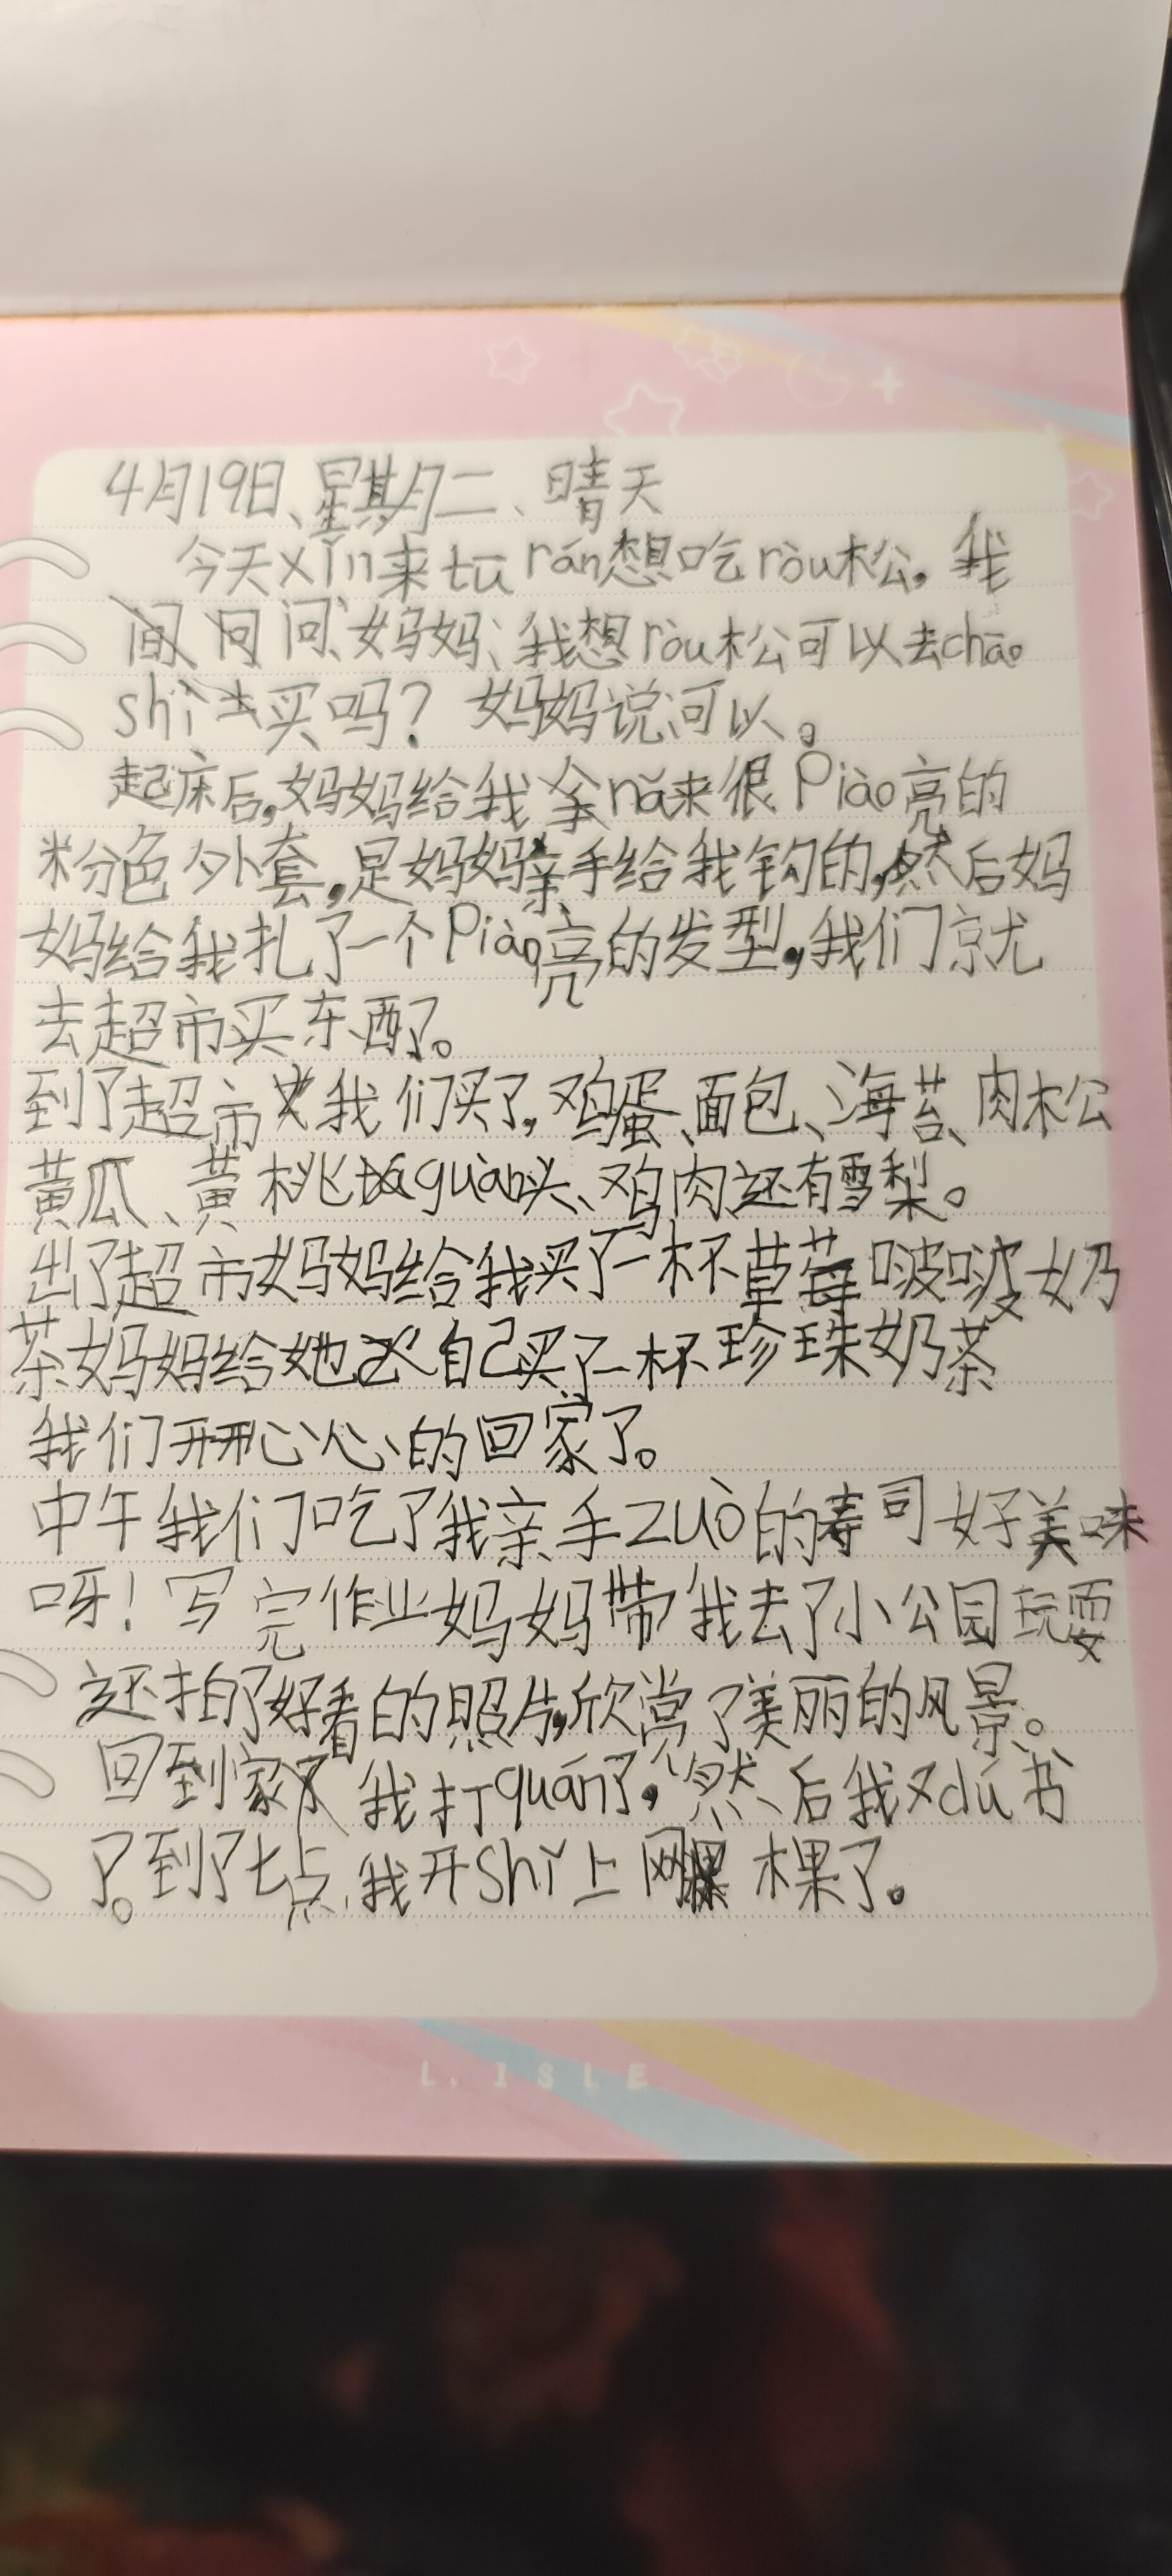 4月19日、星期二、晴天
今天xǐn来tū rán想吃ròu松,我
问妈妈、我想ròu松可以去chāo
shì买吗?妈妈说可以。
起床后,妈妈给我拿nǎ来很Piào亮的
粉色外套,是妈妈亲手给我钩的,然后妈
妈给我扎了一个Piào亮的发型,我们就
去超市买东西了。
到了超市我们买了,鸡蛋、面包、海苔、肉松
黄瓜、黄桃guàn头、鸡肉还有雪梨。
出了超市妈妈给我买了一杯草莓啵啵奶
茶妈妈给她自己买了一杯珍珠奶茶
我们开开心心的回家了。
中午我们吃了我亲手zuò的寿司好美味
呀!写完作业妈妈带我去了小公园玩耍
还拍了好看的照片,欣赏了美丽的风景。
回到家我打quán了,然后我又dú书
了。到了七点,我开Shǐ上网棵了。
L. ISLE